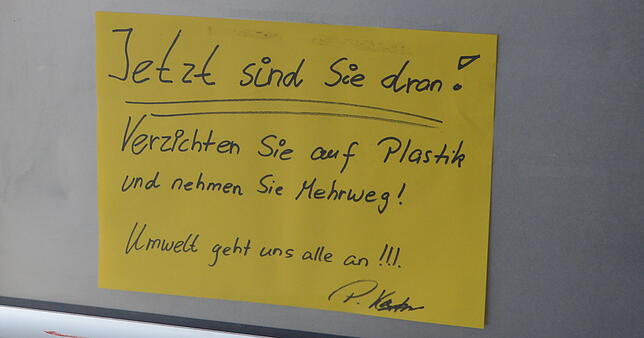 Jetzt sind Sie dran!
Verzichten Sie auf Plastik
und nehmen Sie Mehrweg!
Umwelt geht uns alle an!!!.
P.